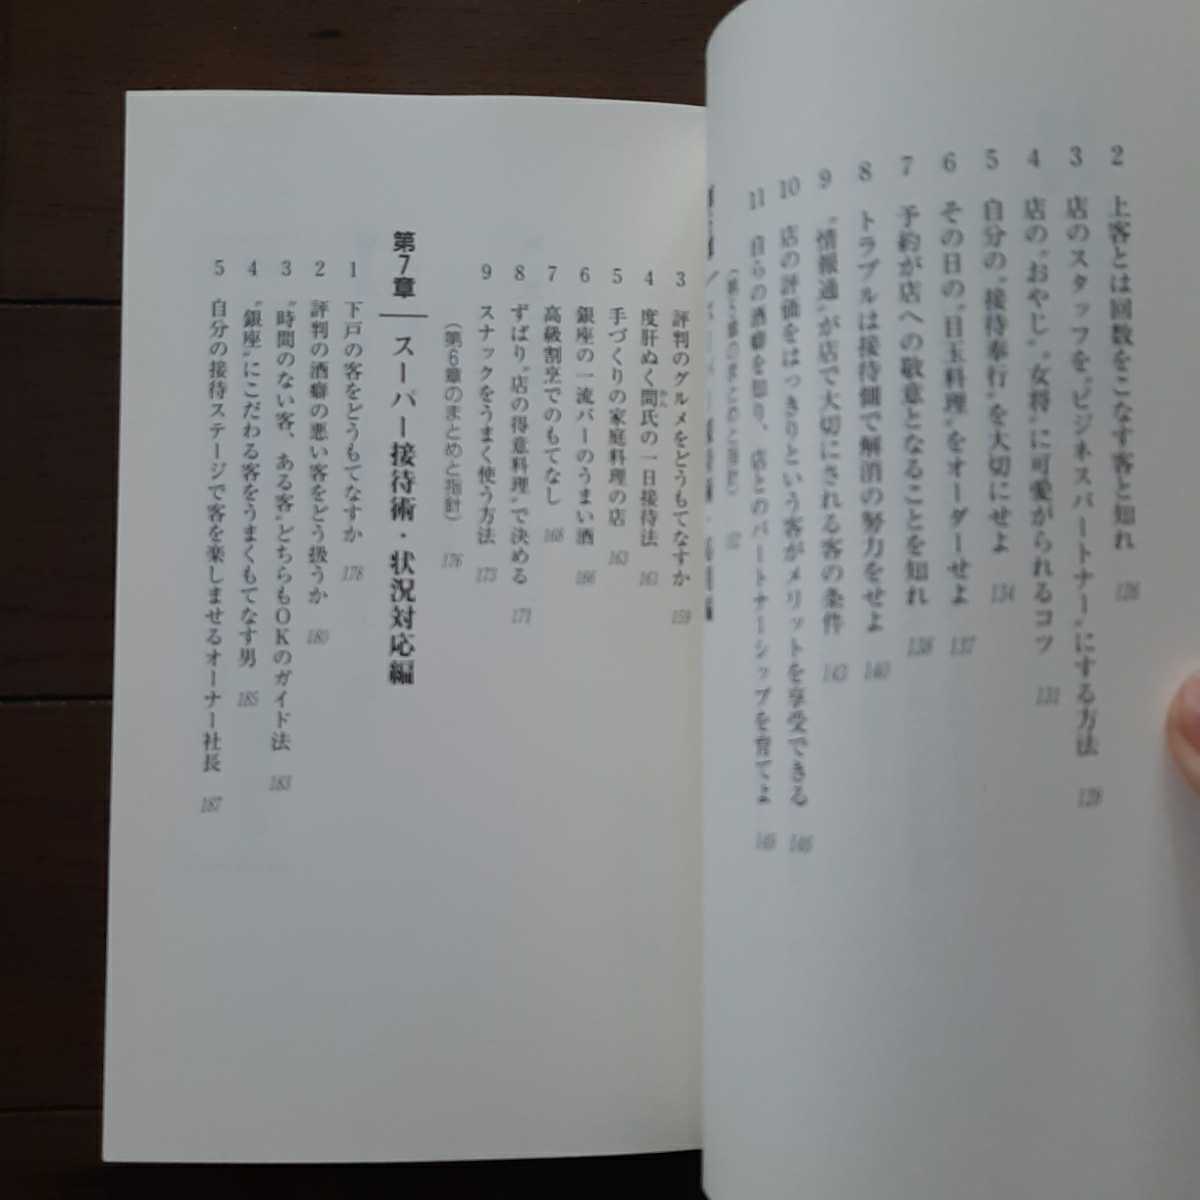 2 上客とは回数をこなす客と知れ 126
3 店のスタッフを〝ビジネスパートナー〟にする方法 128
4 店の〝おやじ〟〝女将〟に可愛がられるコツ 131
5 自分の〝接待奉行〟を大切にせよ 134
6 その日の〝目玉料理〟をオーダーせよ 137
7 予約が店への敬意となることを知れ 138
8 トラブルは接待側で解消の努力をせよ 140
9 〝情報通〟が店で大切にされる客の条件 143
10 店の評価をはっきりという客がメリットを享受できる 146
11 自らの酒癖を知り、店とのパートナーシップを育てよ 148
3 評判のグルメをどうもてなすか 159
4 度肝ぬく間氏の一日接待法 161
かん
5 手づくりの家庭料理の店 163
6 銀座の一流バーのうまい酒 166
7 高級割烹でのもてなし 168
8 ずばり〝店の得意料理〟で決める 171
9 スナックをうまく使う方法 173
(第6章のまとめと指針) 176
第7章 スーパー接待術・状況対応編
1 下戸の客をどうもてなすか 178
2 評判の酒癖の悪い客をどう扱うか 180
3 〝時間のない客、ある客〟どちらもOKのガイド法 183
4 〝銀座〟にこだわる客をうまくもてなす男 185
5 自分の接待ステージで客を楽しませるオーナー社長 187